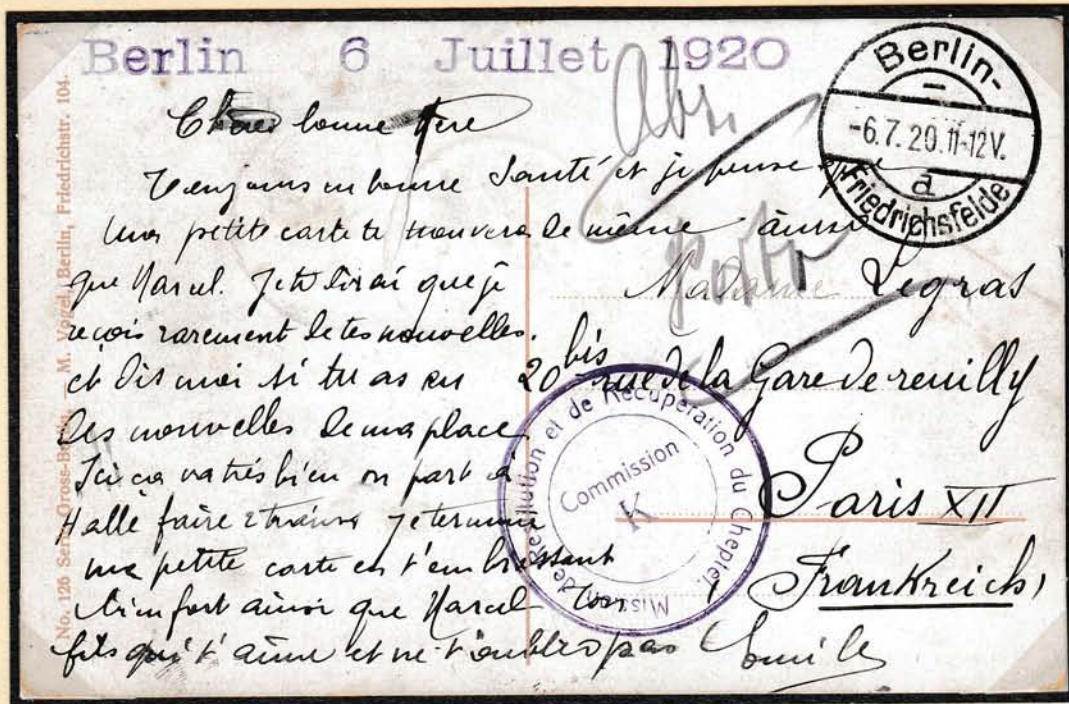 Berlin 6 Juillet 1920
Chère bonne Mère
Toujours en bonne Santé et je pense que
ma petite carte te trouvera de même ainsi
que Marcel. Je te dirai que je
reçois rarement de tes nouvelles.
et dis moi si tu as eu
des nouvelles de ma place
Ici ca va très bien on part à
Halle faire 2 trains Je termine
ma petite carte en t'embrassant
bien fort ainsi que Marcel Ton
fils qui t'aime et ne t'oublis pas Emile
Abs.
Porto
Berlin-
-6.7.20.11-12V.
a
Friedrichsfelde
Madame Legras
20 bis rue de la Gare de reuilly
Paris XII
Frankreich
Mission de Restitution et de Récupération du Cheptel.
Commission
K
No. 126 Serie Gross-Berlin. — M. Vogel, Berlin, Friedrichstr. 104.